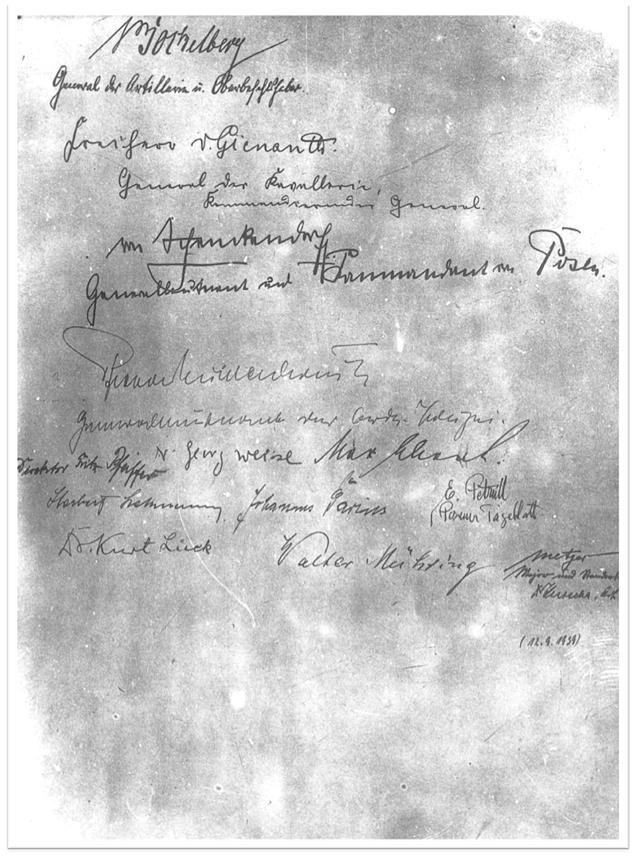 v. Bockelberg
General der Artillerie u. Oberbefehlshaber.
Freiherr v. Gienanth.
General der Kavallerie,
Kommandierender General.
von Schenckendorff
Generalleutnant und Kommandant von Posen.
Generalleutnant der
Direktor Fritz Pfeiffer Dr. Georg Weise Max
Herbert Johannes
E. Petrull
Posener Tageblatt
Dr. Kurt Lück Walter Mühring Metzger
Major und
(12.9.1939)